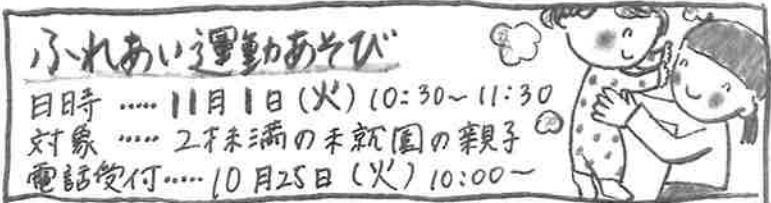 ふれあい運動あそび
日時 ‥‥‥ 11月1日(火) 10:30~11:30
対象 ‥‥‥ 2才未満の未就園の親子
電話受付‥‥‥ 10月25日(火) 10:00~